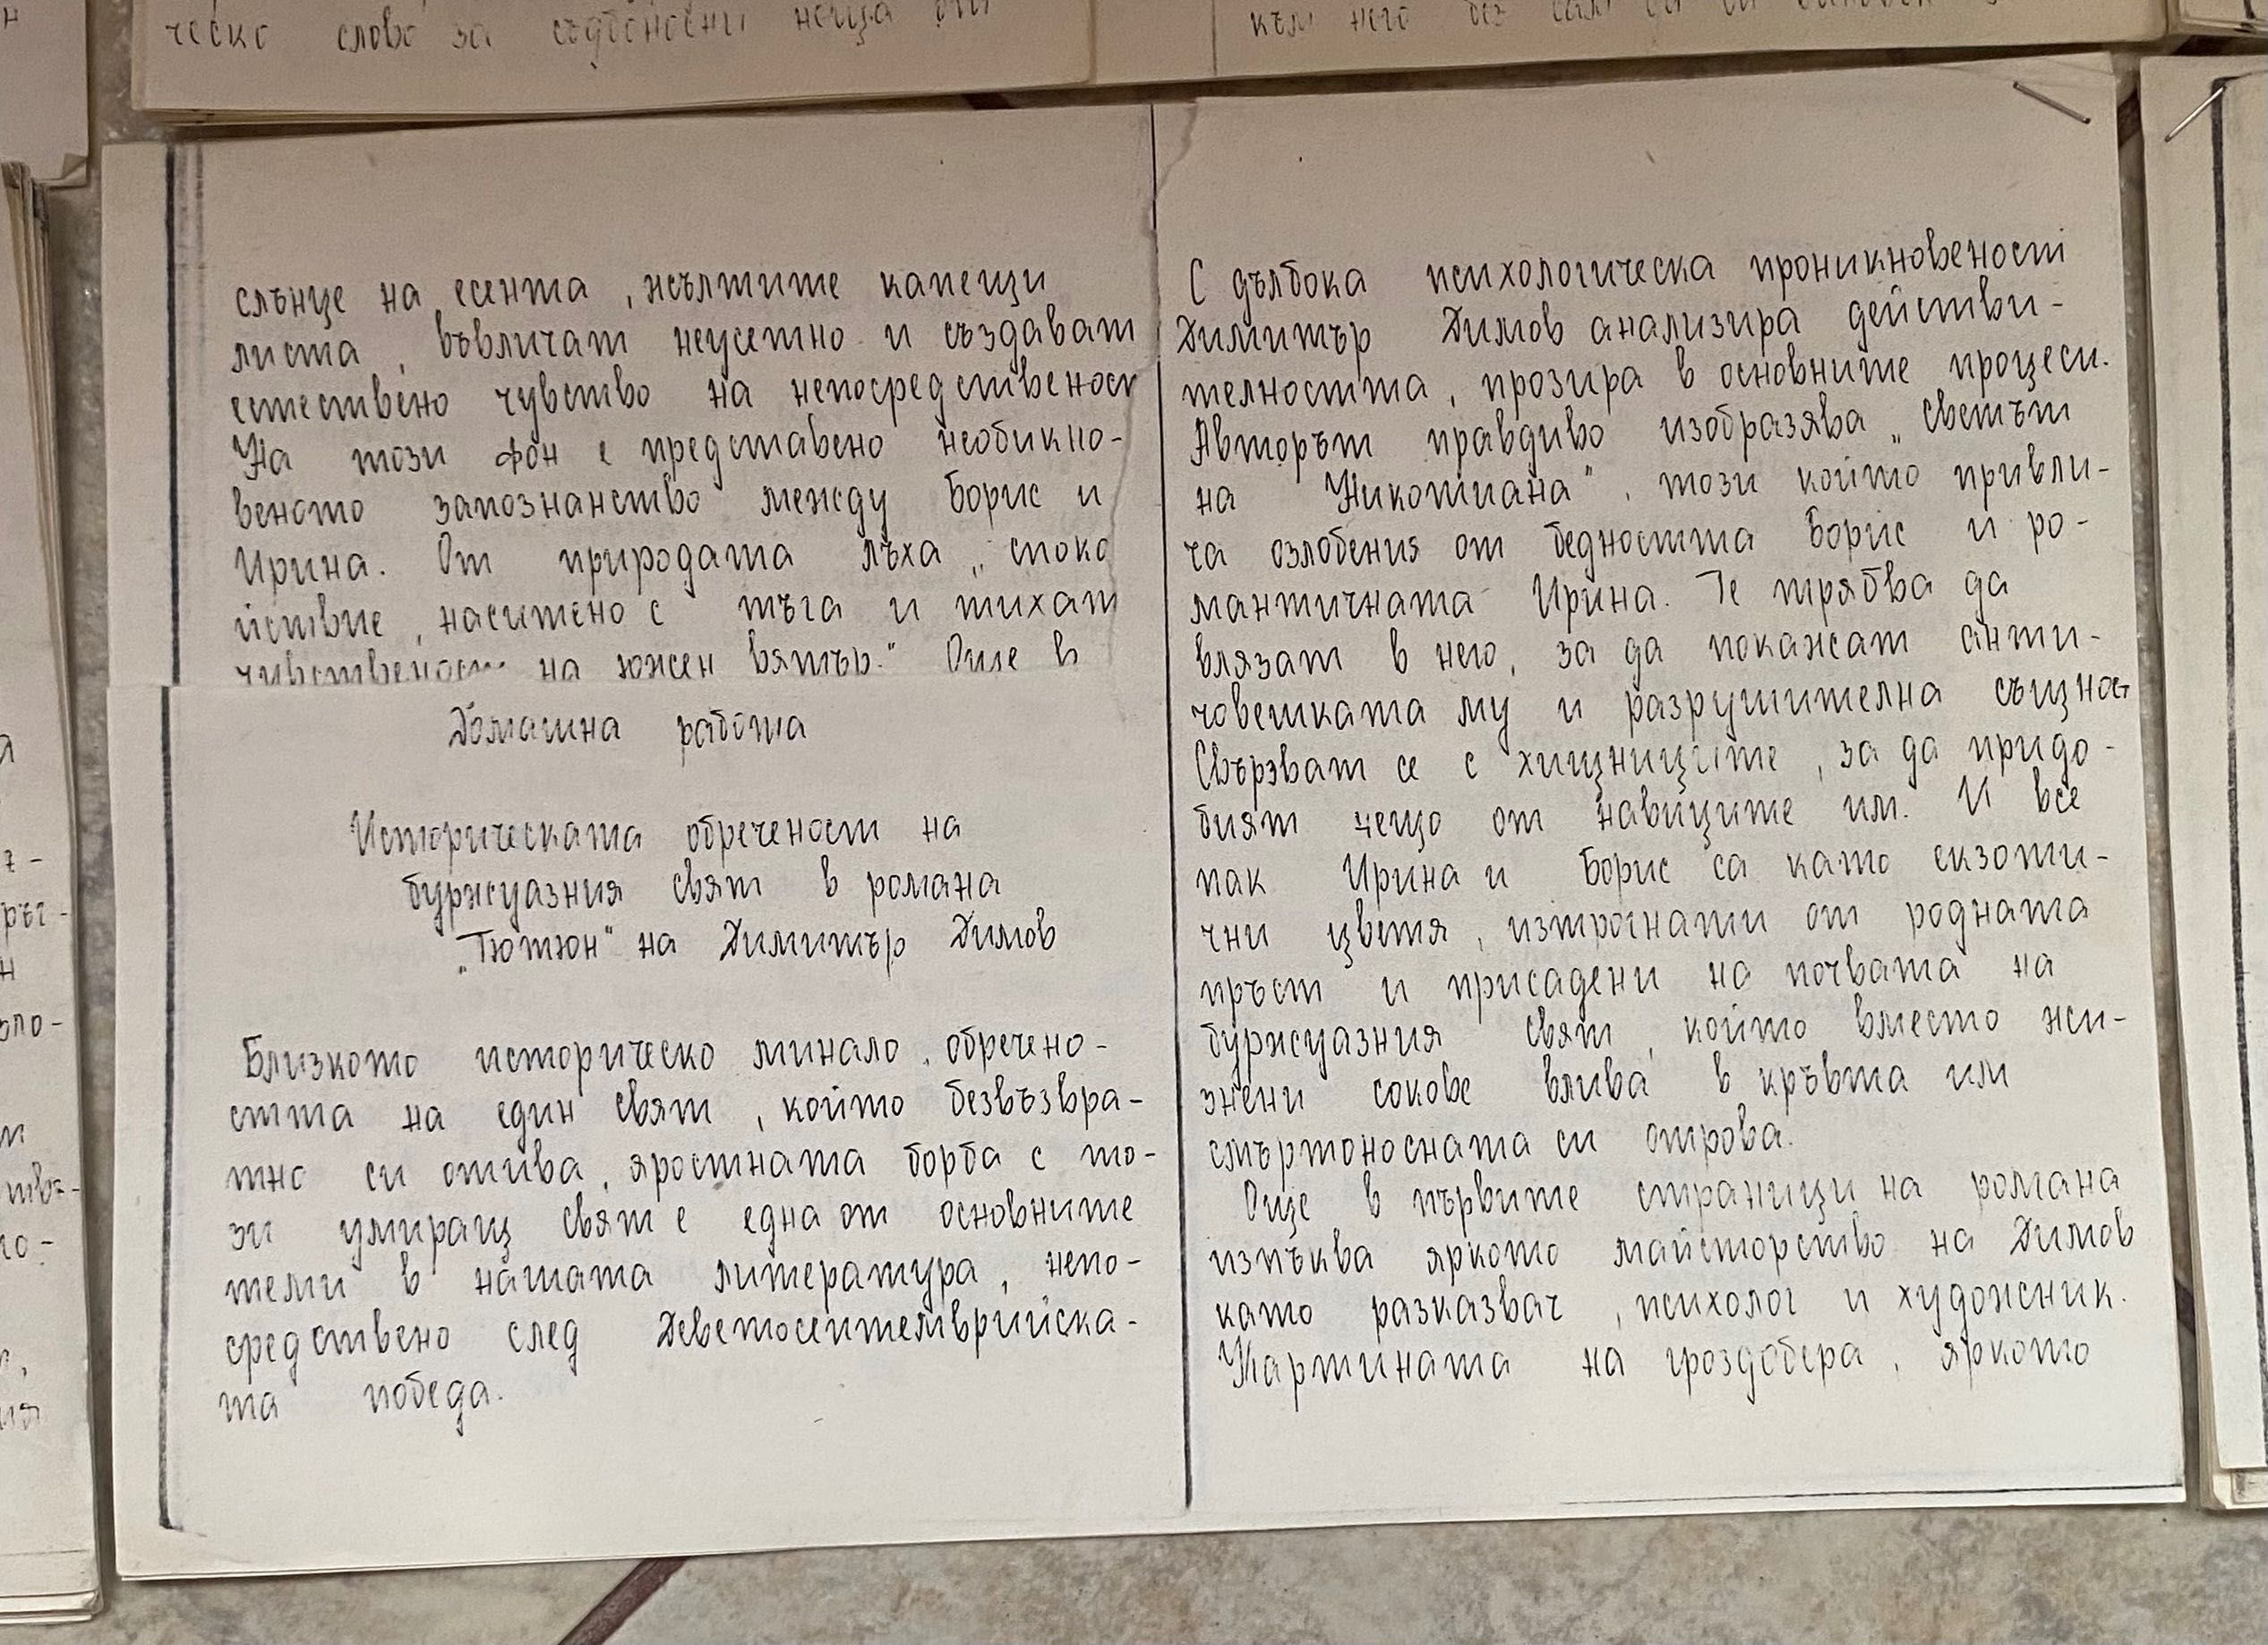 ческо слово за съдбоносни неща
към него без
слънце на есента, жълтите капещи
листа, въвличат неусетно и създават
естествено чувство на непосредственост
На този фон е представено необикно-
веното запознанство между Борис и
Ирина. От природата лъха „споко
йствие, наситено с тъга и тихат
чувственост на южен вятър." Още в
Домашна работа
Историческата обреченост на
буржуазния свят в романа
„Тютюн" на Димитър Димов
Близкото историческо минало, обречено-
стта на един свят, който безвъзвра-
тно си отива, яростната борба с то-
зи умиращ свят е една от основните
теми в нашата литература, непо-
средствено след Деветосептемврийска-
та победа.
С дълбока психологическа проникновеност
Димитър Димов анализира действи-
телността, прозира в основните процеси.
Авторът правдиво изобразява „светът
на Никотиана", този който привли-
ча озлобения от бедността Борис и ро-
мантичната Ирина. Те трябва да
влязат в него, за да покажат анти-
човешката му и разрушителна същност
Свързват се с хищниците, за да придо-
бият нещо от навиците им. И все
пак Ирина и Борис са като екзоти-
чни цветя, изтрогнати от родната
пръст и присадени на почвата на
буржуазния свят, който вместо жи-
знени сокове влива в кръвта им
смъртоносната си отрова.
Още в първите страници на романа
изпъква яркото майсторство на Димов
като разказвач, психолог и художник.
Картината на гроздобера, яркото